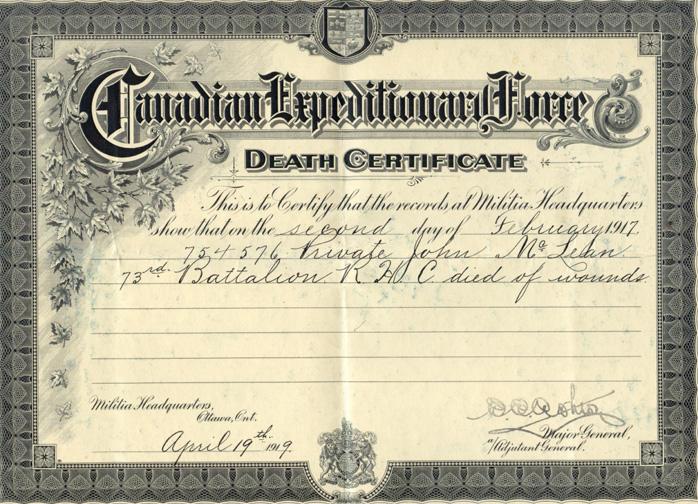 Canadian Expeditionary Force
DEATH CERTIFICATE
This is to Certify that the records at Militia Headquarters
show that on the second day of February 1917.
754576 Private John McLean
73rd Battalion. R H C died of wounds.
Militia Headquarters,
Ottawa, Ont.
April 19th 1919.
Major General,
Adjutant General.